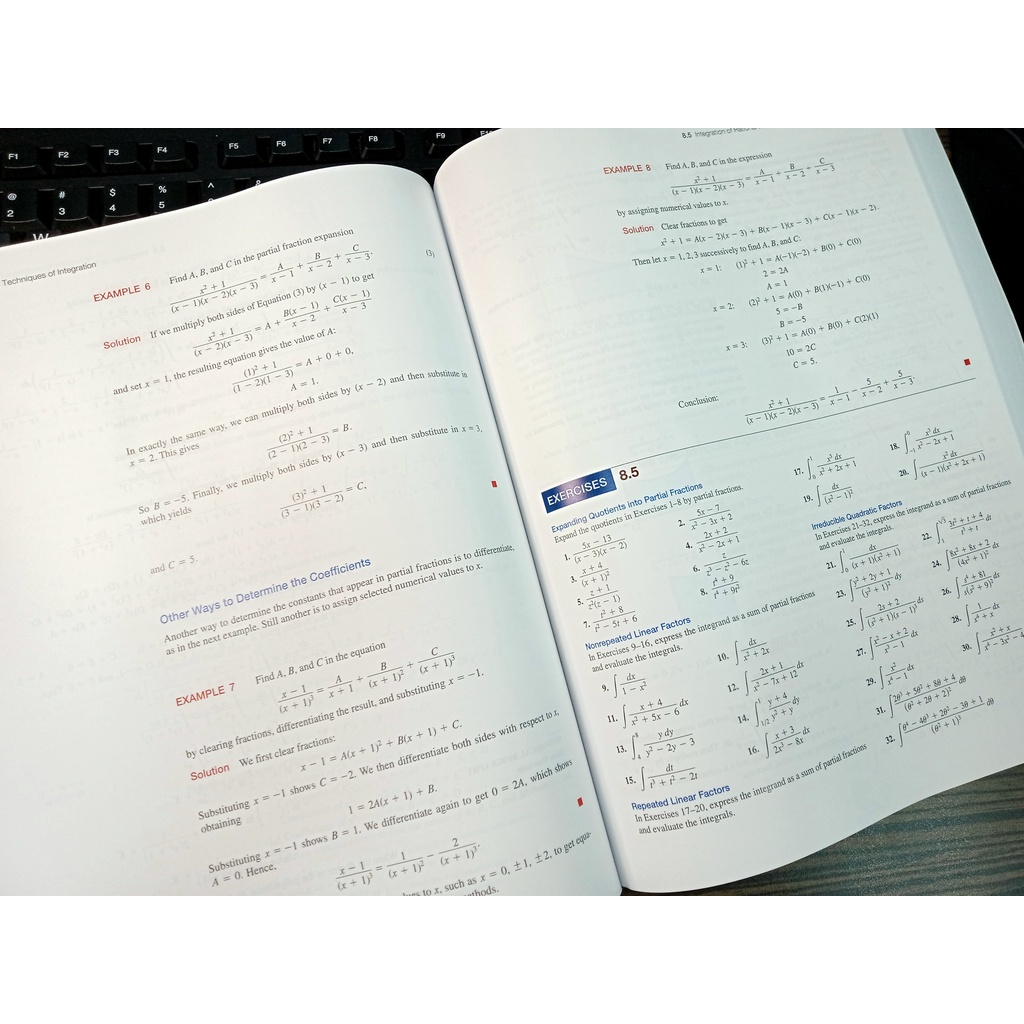 F1 F2 F3 F4 F5 F6 F7 F8 F9
@ # $ % ^ &
2 3 4 5
W
Techniques of Integration
EXAMPLE 6 Find A, B, and C in the partial fraction expansion
(x² + 1)/((x − 1)(x − 2)(x − 3)) = A/(x − 1) + B/(x − 2) + C/(x − 3). (3)
Solution If we multiply both sides of Equation (3) by (x − 1) to get
(x² + 1)/((x − 2)(x − 3)) = A + B(x − 1)/(x − 2) + C(x − 1)/(x − 3)
and set x = 1, the resulting equation gives the value of A:
((1)² + 1)/((1 − 2)(1 − 3)) = A + 0 + 0,
A = 1.
In exactly the same way, we can multiply both sides by (x − 2) and then substitute in
x = 2. This gives
((2)² + 1)/((2 − 1)(2 − 3)) = B.
So B = −5. Finally, we multiply both sides by (x − 3) and then substitute in x = 3,
which yields
((3)² + 1)/((3 − 1)(3 − 2)) = C,
and C = 5.
Other Ways to Determine the Coefficients
Another way to determine the constants that appear in partial fractions is to differentiate,
as in the next example. Still another is to assign selected numerical values to x.
EXAMPLE 7 Find A, B, and C in the equation
(x − 1)/(x + 1)³ = A/(x + 1) + B/(x + 1)² + C/(x + 1)³
by clearing fractions, differentiating the result, and substituting x = −1.
Solution We first clear fractions:
x − 1 = A(x + 1)² + B(x + 1) + C.
Substituting x = −1 shows C = −2. We then differentiate both sides with respect to x,
obtaining
1 = 2A(x + 1) + B.
Substituting x = −1 shows B = 1. We differentiate again to get 0 = 2A, which shows
A = 0. Hence,
(x − 1)/(x + 1)³ = 1/(x + 1)² − 2/(x + 1)³.
to x, such as x = 0, ±1, ±2, to get equa-
8.5 Integration of
EXAMPLE 8 Find A, B, and C in the expression
(x² + 1)/((x − 1)(x − 2)(x − 3)) = A/(x − 1) + B/(x − 2) + C/(x − 3)
by assigning numerical values to x.
Solution Clear fractions to get
x² + 1 = A(x − 2)(x − 3) + B(x − 1)(x − 3) + C(x − 1)(x − 2).
Then let x = 1, 2, 3 successively to find A, B, and C:
x = 1: (1)² + 1 = A(−1)(−2) + B(0) + C(0)
2 = 2A
A = 1
x = 2: (2)² + 1 = A(0) + B(1)(−1) + C(0)
5 = −B
B = −5
x = 3: (3)² + 1 = A(0) + B(0) + C(2)(1)
10 = 2C
C = 5.
Conclusion: (x² + 1)/((x − 1)(x − 2)(x − 3)) = 1/(x − 1) − 5/(x − 2) + 5/(x − 3).
EXERCISES 8.5
Expanding Quotients into Partial Fractions
Expand the quotients in Exercises 1–8 by partial fractions.
1. (5x − 13)/((x − 3)(x − 2)) 2. (5x − 7)/(x² − 3x + 2)
3. (x + 4)/(x + 1)² 4. (2x + 2)/(x² − 2x + 1)
5. (z + 1)/(z²(z − 1)) 6. z/(z³ − z² − 6z)
7. (t² + 8)/(t² − 5t + 6) 8. (t⁴ + 9)/(t⁴ + 9t²)
Nonrepeated Linear Factors
In Exercises 9–16, express the integrand as a sum of partial fractions
and evaluate the integrals.
9. ∫ dx/(1 − x²) 10. ∫ dx/(x² + 2x)
11. ∫ (x + 4)/(x² + 5x − 6) dx 12. ∫ (2x + 1)/(x² − 7x + 12) dx
13. ∫₄⁸ y dy/(y² − 2y − 3) 14. ∫₁/₂¹ (y + 4)/(y² + y) dy
15. ∫ dt/(t³ + t² − 2t) 16. ∫ (x + 3)/(2x³ − 8x) dx
Repeated Linear Factors
In Exercises 17–20, express the integrand as a sum of partial fractions
and evaluate the integrals.
17. ∫₀¹ x³ dx/(x² + 2x + 1) 18. ∫₋₁⁰ x³ dx/(x² − 2x + 1)
19. ∫ dx/(x² − 1)² 20. ∫ x² dx/((x − 1)(x² + 2x + 1))
Irreducible Quadratic Factors
In Exercises 21–32, express the integrand as a sum of partial fractions
and evaluate the integrals.
21. ∫₀¹ dx/((x + 1)(x² + 1)) 22. ∫₁^√3 (3t² + t + 4)/(t³ + t) dt
23. ∫ (y² + 2y + 1)/(y² + 1)² dy 24. ∫ (8x² + 8x + 2)/(4x² + 1)² dx
25. ∫ (2s + 2)/((s² + 1)(s − 1)³) ds 26. ∫ (s⁴ + 81)/(s(s² + 9)²) ds
27. ∫ (x² − x + 2)/(x³ − 1) dx 28. ∫ 1/(x⁴ + x) dx
29. ∫ x²/(x⁴ − 1) dx 30. ∫ (x² + x)/(x⁴ − 3x² − 4
31. ∫ (2θ³ + 5θ² + 8θ + 4)/(θ² + 2θ + 2)² dθ
32. ∫ (θ⁴ − 4θ³ + 2θ² − 3θ + 1)/(θ² + 1)³ dθ